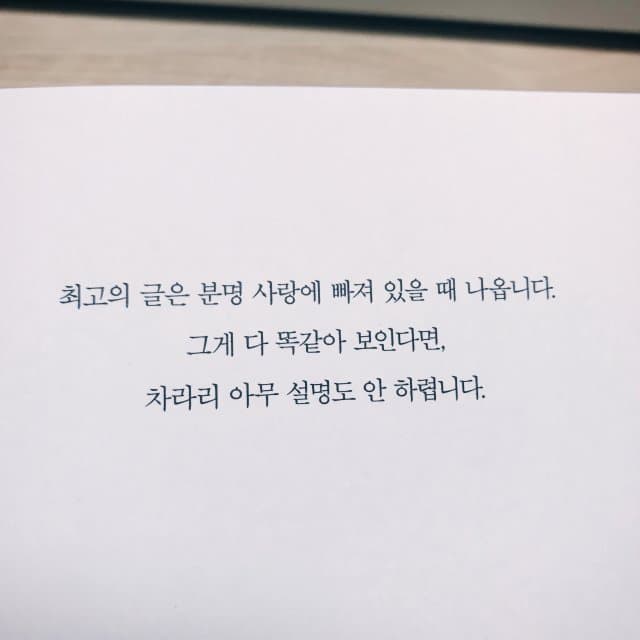 최고의 글은 분명 사랑에 빠져 있을 때 나옵니다.
그게 다 똑같아 보인다면,
차라리 아무 설명도 안 하렵니다.